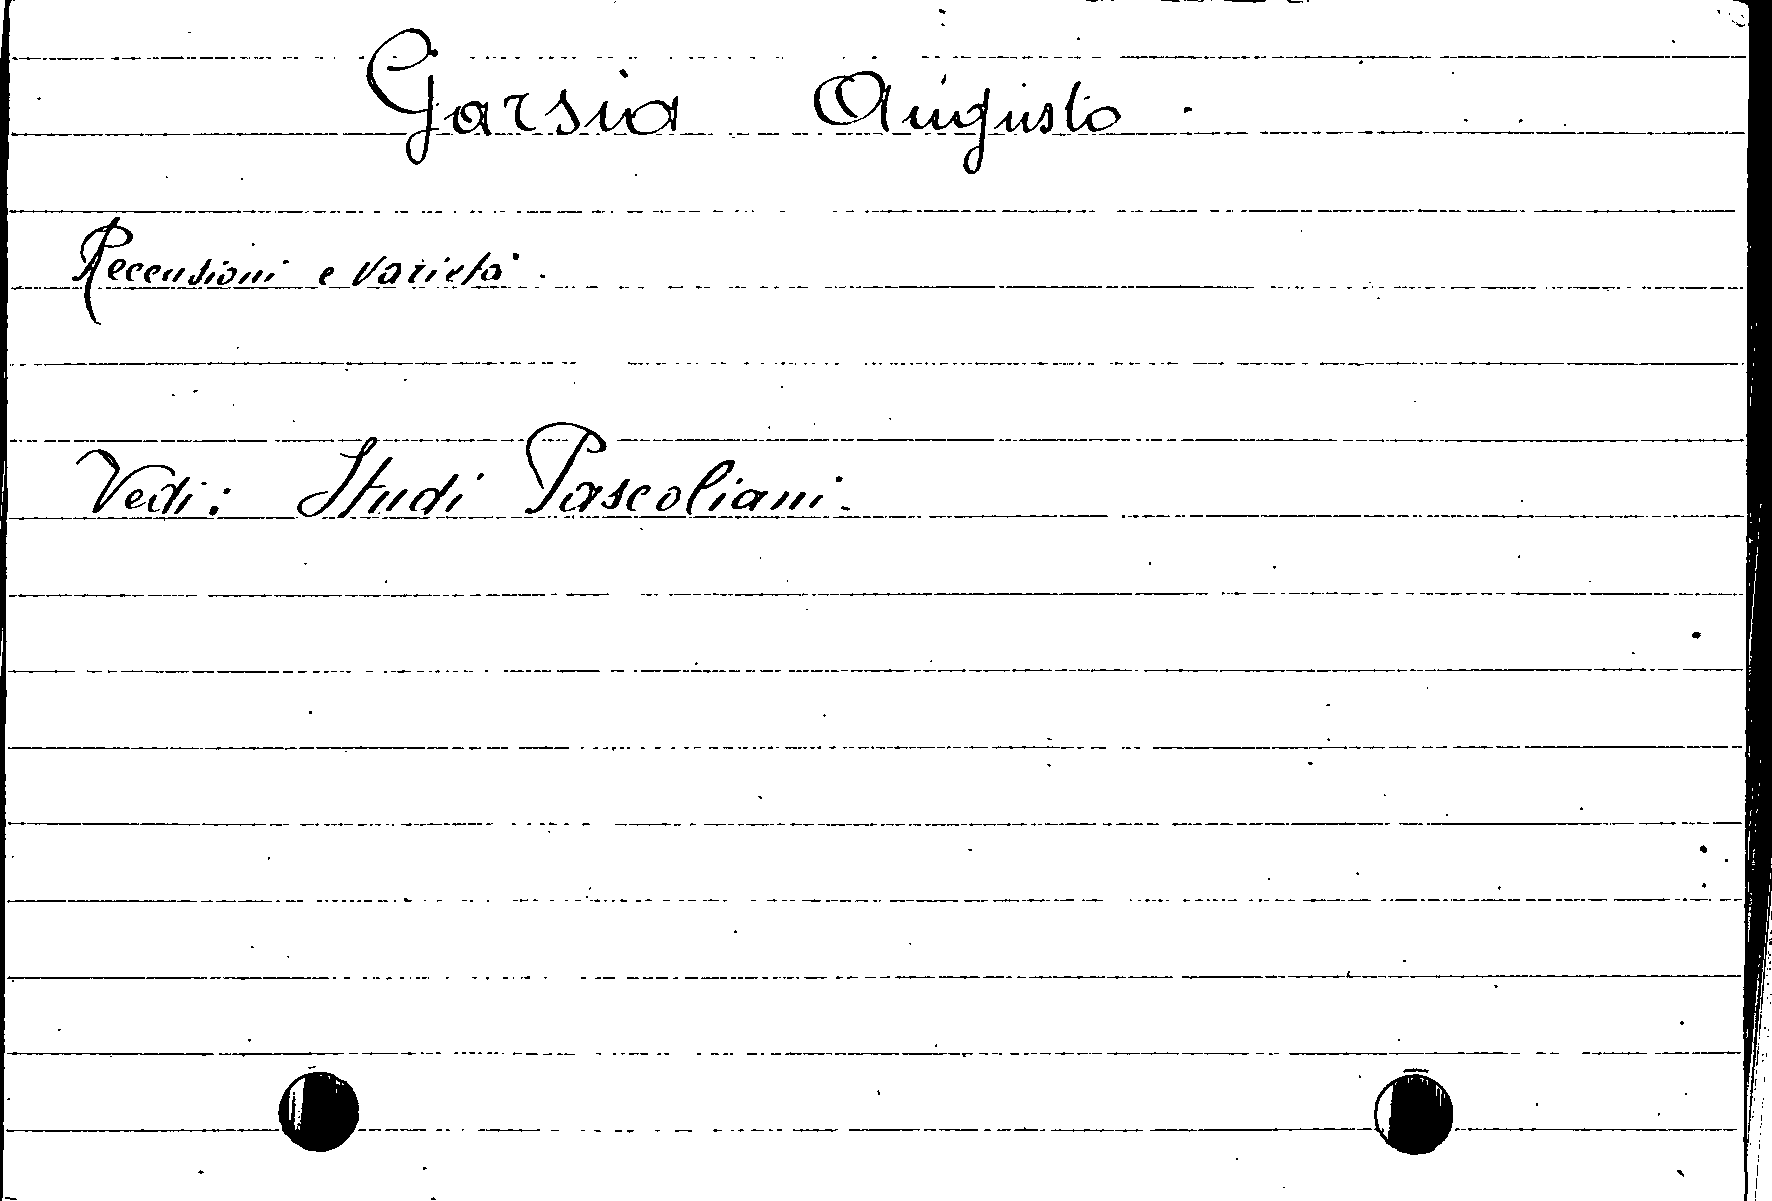 Garsia Augusto.
Recensioni e varietà.
Vedi: Studi Pascoliani.